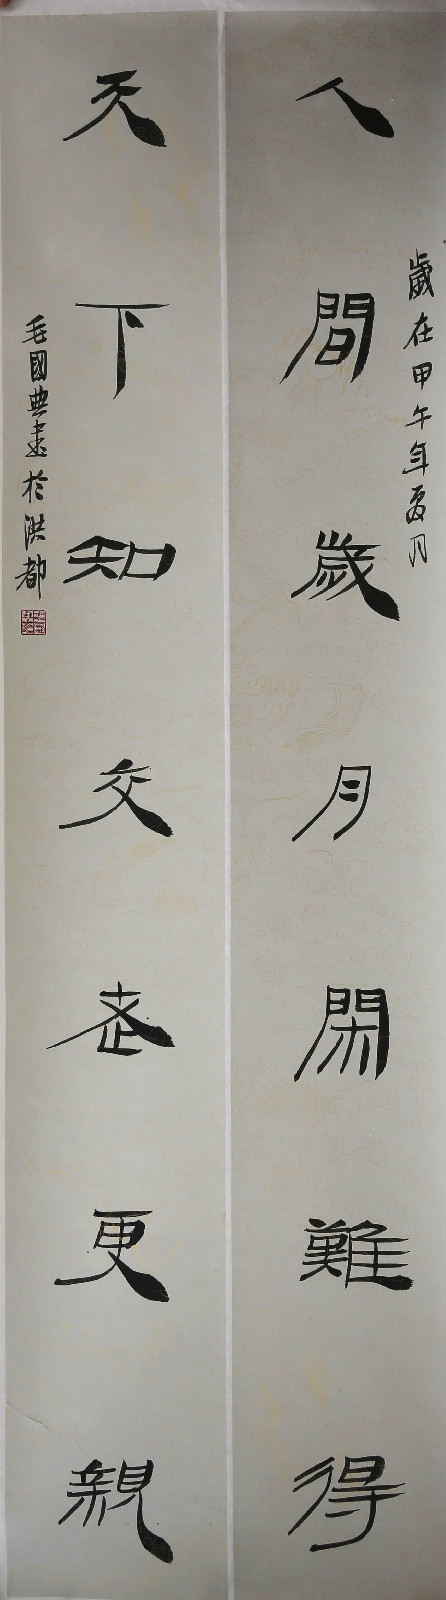 歲在甲午年夏月
人間歲月閑難得
天下知交老更親
毛國典書於洪都